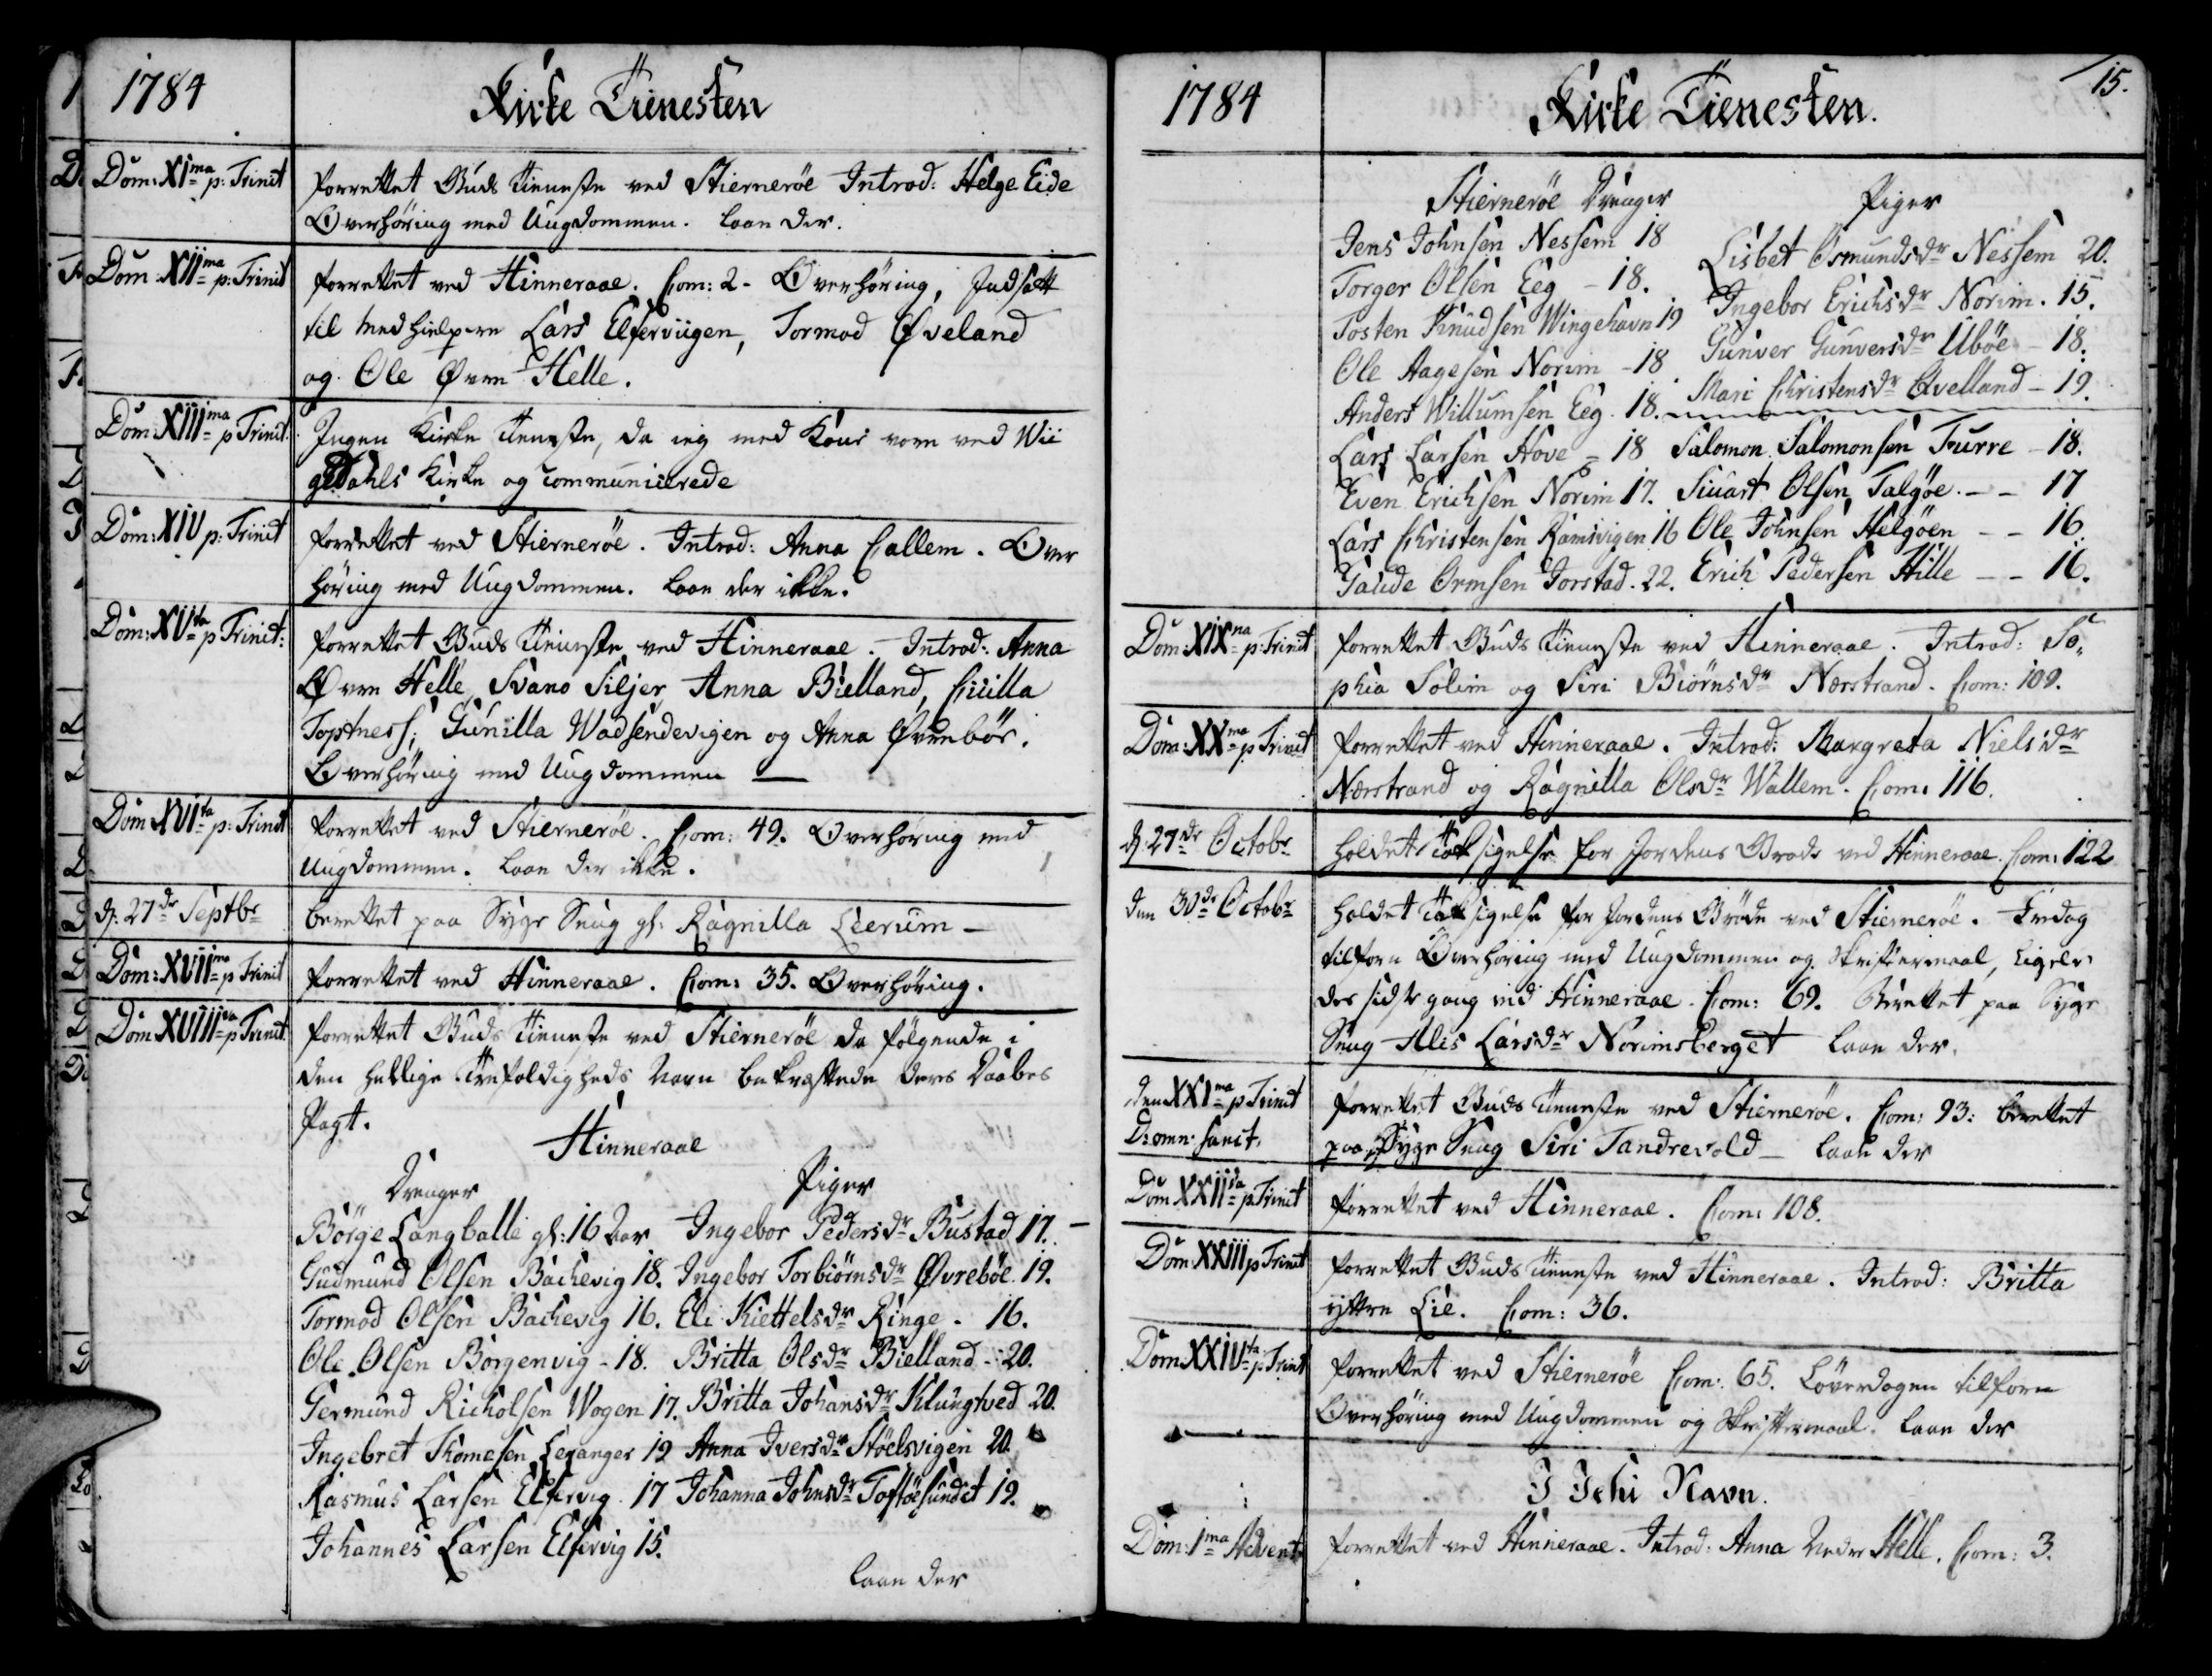 1784
Kirke Tienesten
Dom: XI ma p: Trinit
forrettet Guds Tieneste ved Stierneröe Introd: Helge Eide
Overhöring med Ungdommen. laae der.
Dom: XII ma p: Trinit
forrettet ved Hinneraae. Com: 2 - Overhöring, Indsatt
til Medhielpere Lars Elfervigen, Tormod Øveland
og Ole Øvre Helle.
Dom: XIII ma p Trinit.
Ingen Kirke Tieneste, da ieg med Kone vare ved Wii
gedahls Kirke og communicerede
Dom: XIV p: Trinit
forrettet ved Stierneröe. Introd: Anna Callem. Over
höring med Ungdommen. laae der ikke.
Dom: XV ta p Trinit:
forrettet Guds Tieneste ved Hinneraae. - Introd: Anna
Øvre Helle, Svano Siljer Anna Bielland, Cicilla
Toptness, Gunilla Wadsendevigen og Anna Øvrebör.
Overhöring med Ungdommen
Dom XVI ta p: Trinit
forrettet ved Stierneröe. Com: 49. Overhöring med
Ungdommen. laae der ikke.
d: 27 de Septbr
berettet paa Syge Seng gl: Ragnilla Leerum -
Dom: XVII ma p Trinit
forrettet ved Hinneraae. Com: 35. Overhöring.
Dom XVIII va p Trinit.
forrettet Guds Tieneste ved Stierneröe da fölgende i
den hellige Trefoldigheds Navn bekræftede deres Daabes
Pagt.
Hinneraae
Drenger Piger
Börge Langballe gl: 16 Aar Ingebor Pedersdr Bustad 17. -
Gudmund Olsen Bachevig 18. Ingebor Torbiörnsdr Øvreböe. 19.
Tormod Olsen Bachevig 16. Eli Kiettelsdr Ringe - 16.
Ole Olsen Borgenvig - 18. Britta Olsdr Bielland - 20.
Germund Richolsen Wogen 17. Britta Johansdr Klungtved 20.
Ingebret Thomesen Leranger 19 Anna Iversdr Stöelsvigen 20.
Rasmus Larsen Elfervig 17 Johanna Johnsdr Toftöesundet 19.
Johannes Larsen Elfervig 15.
laae der
1784
Kirke Tienesten.
15.
Stierneröe Drenger Piger
Jens Johnsen Nessem 18 Lisbet Osmundsdr Nessem 20.
Torger Olsen Eeg - 18. Ingebor Erichsdr Norim. 15.
Tosten Knudsen Wingehavn 19 Gunver Gunversdr Uböe - 18.
Ole Aagesen Norim - 18 Mari Christensdr Qvelland - 19.
Anders Willumsen Eeg. 18.
Lars Larsen Hove - 18 Salomon Salomonsen Furre - 18.
Even Erichsen Norim 17. Siuart Olsen Talgöe. - - 17
Lars Christensen Ramsvigen 16 Ole Johnsen Helgöen - - 16.
Gaude Ormsen Jorstad. 22. Erich Pedersen Hille - - 16.
Dom: XIX na p: Trinit
forrettet Guds Tieneste ved Hinneraae. Introd: So,
phia Solim og Siri Biörnsdr Nerstrand. Com: 109.
Dom: XX ma p Trinit
forrettet ved Hinneraae. Introd: Margreta Nielsdr
Nerstrand og Ragnilla Olsdr Wallem. Com: 116.
d: 27 de Octobr
holdet Taksigelse for Jordens Gröde ved Hinneraae. Com: 122
den 30 de Octobr
holdet Taksigelse for Jordens Gröde ved Stierneröe. Fredag
tilforn Overhöring med Ungdommen og Skriftemaal, Ligele,
des sidste gang ved Hinneraae. Com: 69. Berettet paa Syge
Seng Alis Larsdr Norimsberget laae der.
den XXI ma p Trinit
D: omn: Sanct.
forrettet Guds Tieneste ved Stierneröe. Com: 93: berettet
paa Syge Seng Siri Tandrevold - laae der
Dom XXII da p. Trinit
forrettet ved Hinneraae. Com: 108.
Dom: XXIII p Trinit
forrettet Guds Tieneste ved Hinneraae. Introd: Britta
yttre Lie. Com: 36.
Dom XXIV ta p. Trinit
forrettet ved Stierneröe Com: 65. Löverdagen tilforn
Overhöring med Ungdommen og Skriftemaal. laae der
I Jehu Navn.
Dom: 1 ma Advent
forrettet ved Hinneraae. Introd: Anna Nedre Helle. Com: 3.